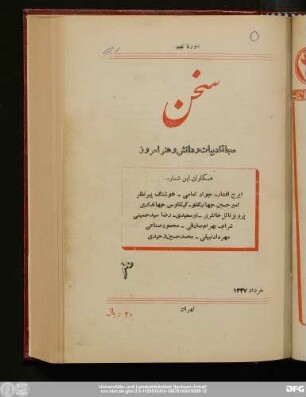 دورهٔ نهم
سخن
مجلهٔ ادبیات و دانش و هنر امروز
همکاران این شماره:
ایرج افشار- جواد امامی - هوشنگ پیر نظر
امیرحسین جهانبگلو- کیکاوس جهانداری
پرویز ناتل خانلری - سعیدی- رضا سید حسینی
بهرام صادقی - محمود صناعی
مهرداد نبیلی - محمدحسین
۳
خرداد ۱۳۳۷
تهران
۲۰ ریال
Universitäts- und Landesbibliothek Sachsen-Anhalt